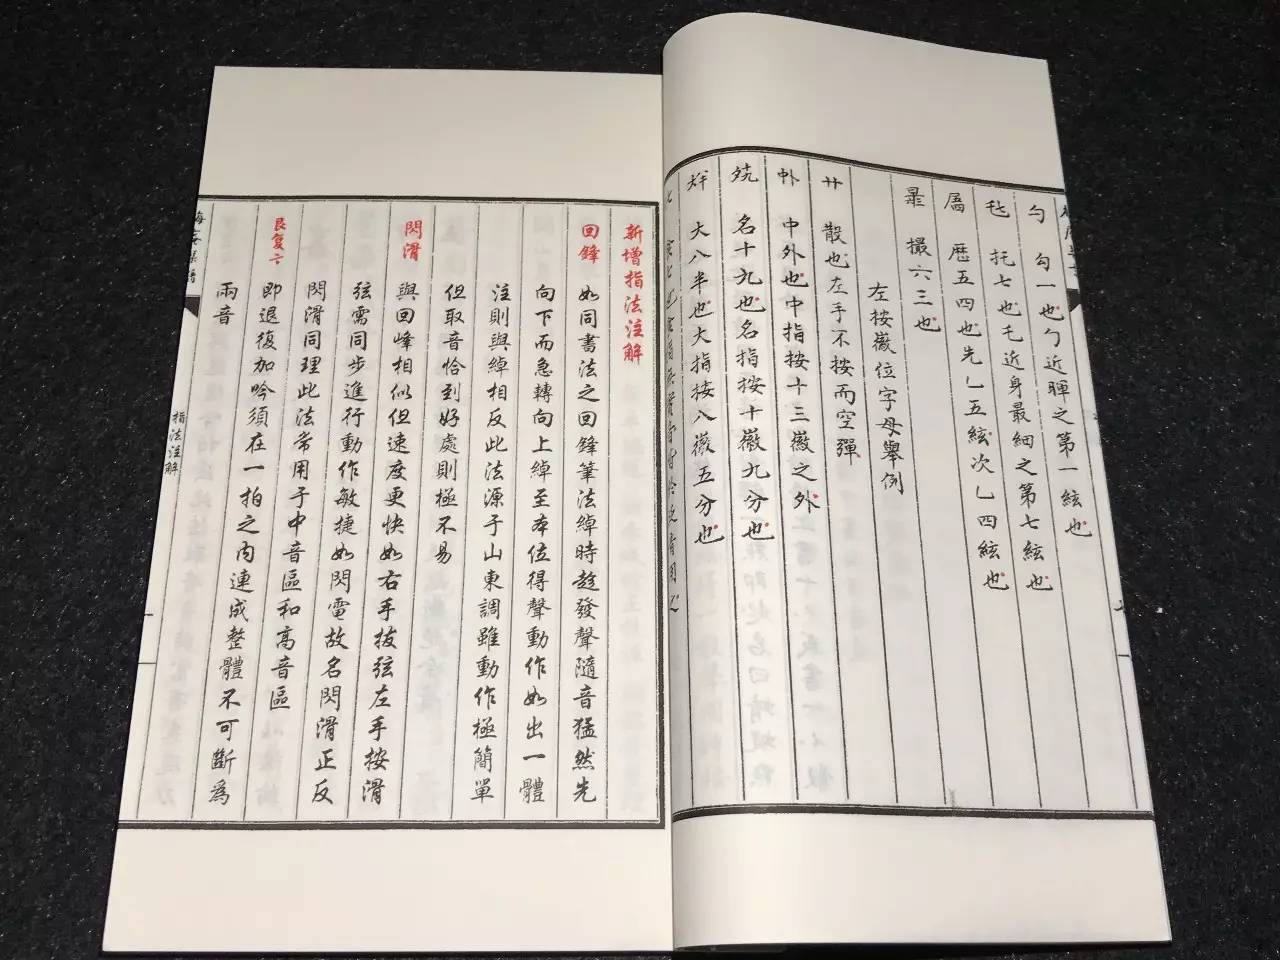 勻一也勹近暉之第一絃也
托七也乇近身最細之第七絃也
歷五四也先乚五絃次乚四絃也
撮六三也
左按徽位字母舉例
艹 散也左手不按而空彈
中外也中指按十三徽之外
名十九也名指按十徽九分也
大八半也大指按八徽五分也
新增指法注解
回鋒 如同書法之回鋒筆法綽時趁發聲隨音猛然先
向下而急轉向上綽至本位得聲動作如出一體
注則與綽相反此法源于山東調雖動作極簡單
但取音恰到好處則極不易
閃滑 與回峰相似但速度更快如右手拔弦左手按滑
弦需同步進行動作敏捷如閃電故名閃滑正反
閃滑同理此法常用于中音區和高音區
即退復加吟須在一拍之內連成整體不可斷為
兩音
指法注解